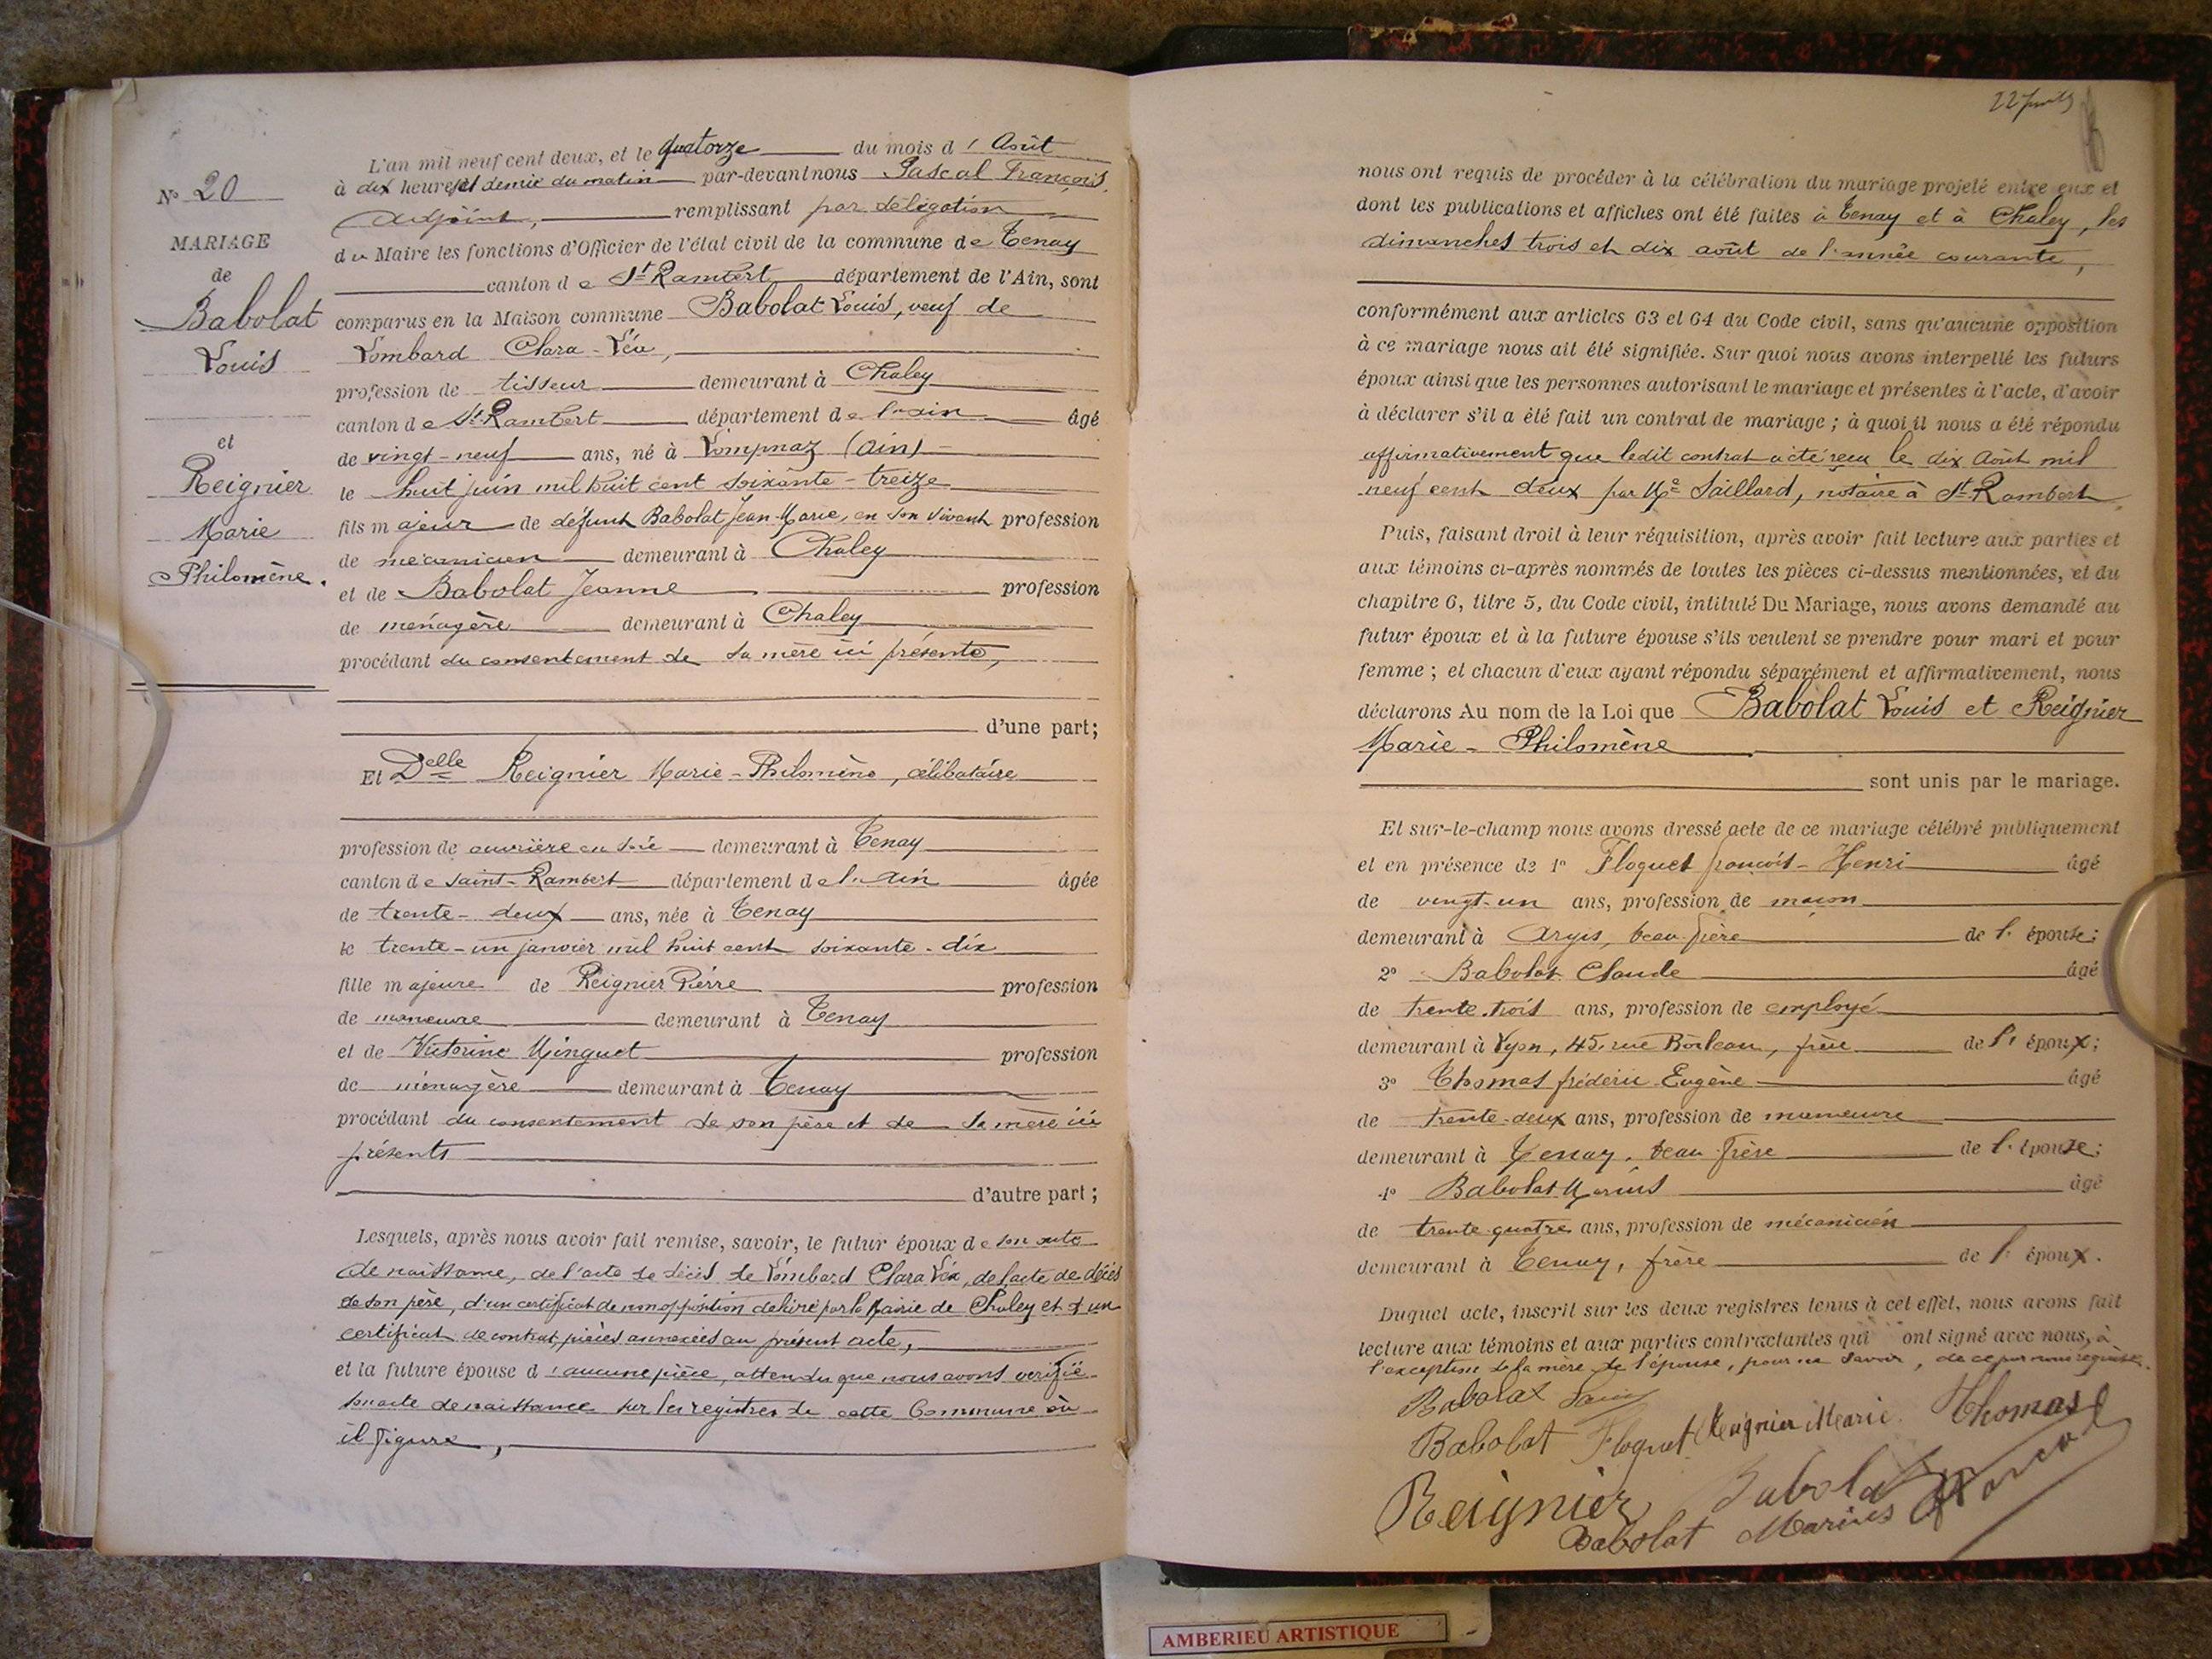 N° 20
MARIAGE
de
Babolat
Louis
et
Reignier
Marie
Philomène.
L'an mil neuf cent deux, et le quatorze du mois d' Août
à dix heures et demie du matin par-devant nous Pascal François,
adjoint, remplissant par délégation
du Maire les fonctions d'Officier de l'état civil de la commune de Tenay
canton de St Rambert département de l'Ain, sont
comparus en la Maison commune Babolat Louis, veuf de
Lombard Clara-Léa,
profession de tisseur demeurant à Chaley
canton de St Rambert département de l'ain âgé
de vingt-neuf ans, né à Lompnaz (Ain)
le huit juin mil huit cent soixante-treize
fils majeur de défunt Babolat Jean-Marie, en son vivant profession
de mécanicien demeurant à Chaley
et de Babolat Jeanne profession
de ménagère demeurant à Chaley
procédant du consentement de sa mère ici présente,
d'une part;
Et Delle Reignier Marie-Philomène, célibataire
profession de ouvrière en soie demeurant à Tenay
canton de Saint-Rambert département de l'ain âgée
de trente-deux ans, née à Tenay
le trente-un janvier mil huit cent soixante-dix
fille majeure de Reignier Pierre profession
de manœuvre demeurant à Tenay
et de Victorine Minguet profession
de ménagère demeurant à Tenay
procédant du consentement de son père et de sa mère ici
présents
d'autre part;
Lesquels, après nous avoir fait remise, savoir, le futur époux de son acte
de naissance, de l'acte de décès de Lombard Clara Léa, de l'acte de décès
de son père, d'un certificat de non opposition délivré par la Mairie de Chaley et d'un
certificat de contrat, pièces annexées au présent acte,
et la future épouse d'aucune pièce, attendu que nous avons vérifié
son acte de naissance sur les registres de cette Commune où
il figure,
nous ont requis de procéder à la célébration du mariage projeté entre eux et
dont les publications et affiches ont été faites à Tenay et à Chaley, les
dimanches trois et dix août de l'année courante,
conformément aux articles 63 et 64 du Code civil, sans qu'aucune opposition
à ce mariage nous ait été signifiée. Sur quoi nous avons interpellé les futurs
époux ainsi que les personnes autorisant le mariage et présentes à l'acte, d'avoir
à déclarer s'il a été fait un contrat de mariage; à quoi il nous a été répondu
affirmativement que ledit contrat a été reçu le dix Août mil
neuf cent deux par Me Saillard, notaire à St-Rambert
Puis, faisant droit à leur réquisition, après avoir fait lecture aux parties et
aux témoins ci-après nommés de toutes les pièces ci-dessus mentionnées, et du
chapitre 6, titre 5, du Code civil, intitulé Du Mariage, nous avons demandé au
futur époux et à la future épouse s'ils veulent se prendre pour mari et pour
femme; et chacun d'eux ayant répondu séparément et affirmativement, nous
déclarons Au nom de la Loi que Babolat Louis et Reignier
Marie-Philomène
sont unis par le mariage.
Et sur-le-champ nous avons dressé acte de ce mariage célébré publiquement
et en présence de 1° Floquet françois-Henri âgé
de vingt-un ans, profession de maçon
demeurant à Argis, beau-frère de l'épouse;
2° Babolat Claude âgé
de trente-trois ans, profession de employé
demeurant à Lyon, 45, rue Boileau, frère de l'époux;
3° Thomas frédéric Eugène âgé
de trente-deux ans, profession de manœuvre
demeurant à Tenay, beau-frère de l'épouse;
4° Babolat Marius âgé
de trente-quatre ans, profession de mécanicien
demeurant à Tenay, frère de l'époux.
Duquel acte, inscrit sur les deux registres tenus à cet effet, nous avons fait
lecture aux témoins et aux parties contractantes qui ont signé avec nous, à
l'exception de la mère de l'épouse, pour ne savoir, de ce par nous requise.
Babolat Louis
Babolat Floquet Reignier Marie Thomas
Reignier Babolat Pascal
Babolat Marius
AMBERIEU ARTISTIQUE